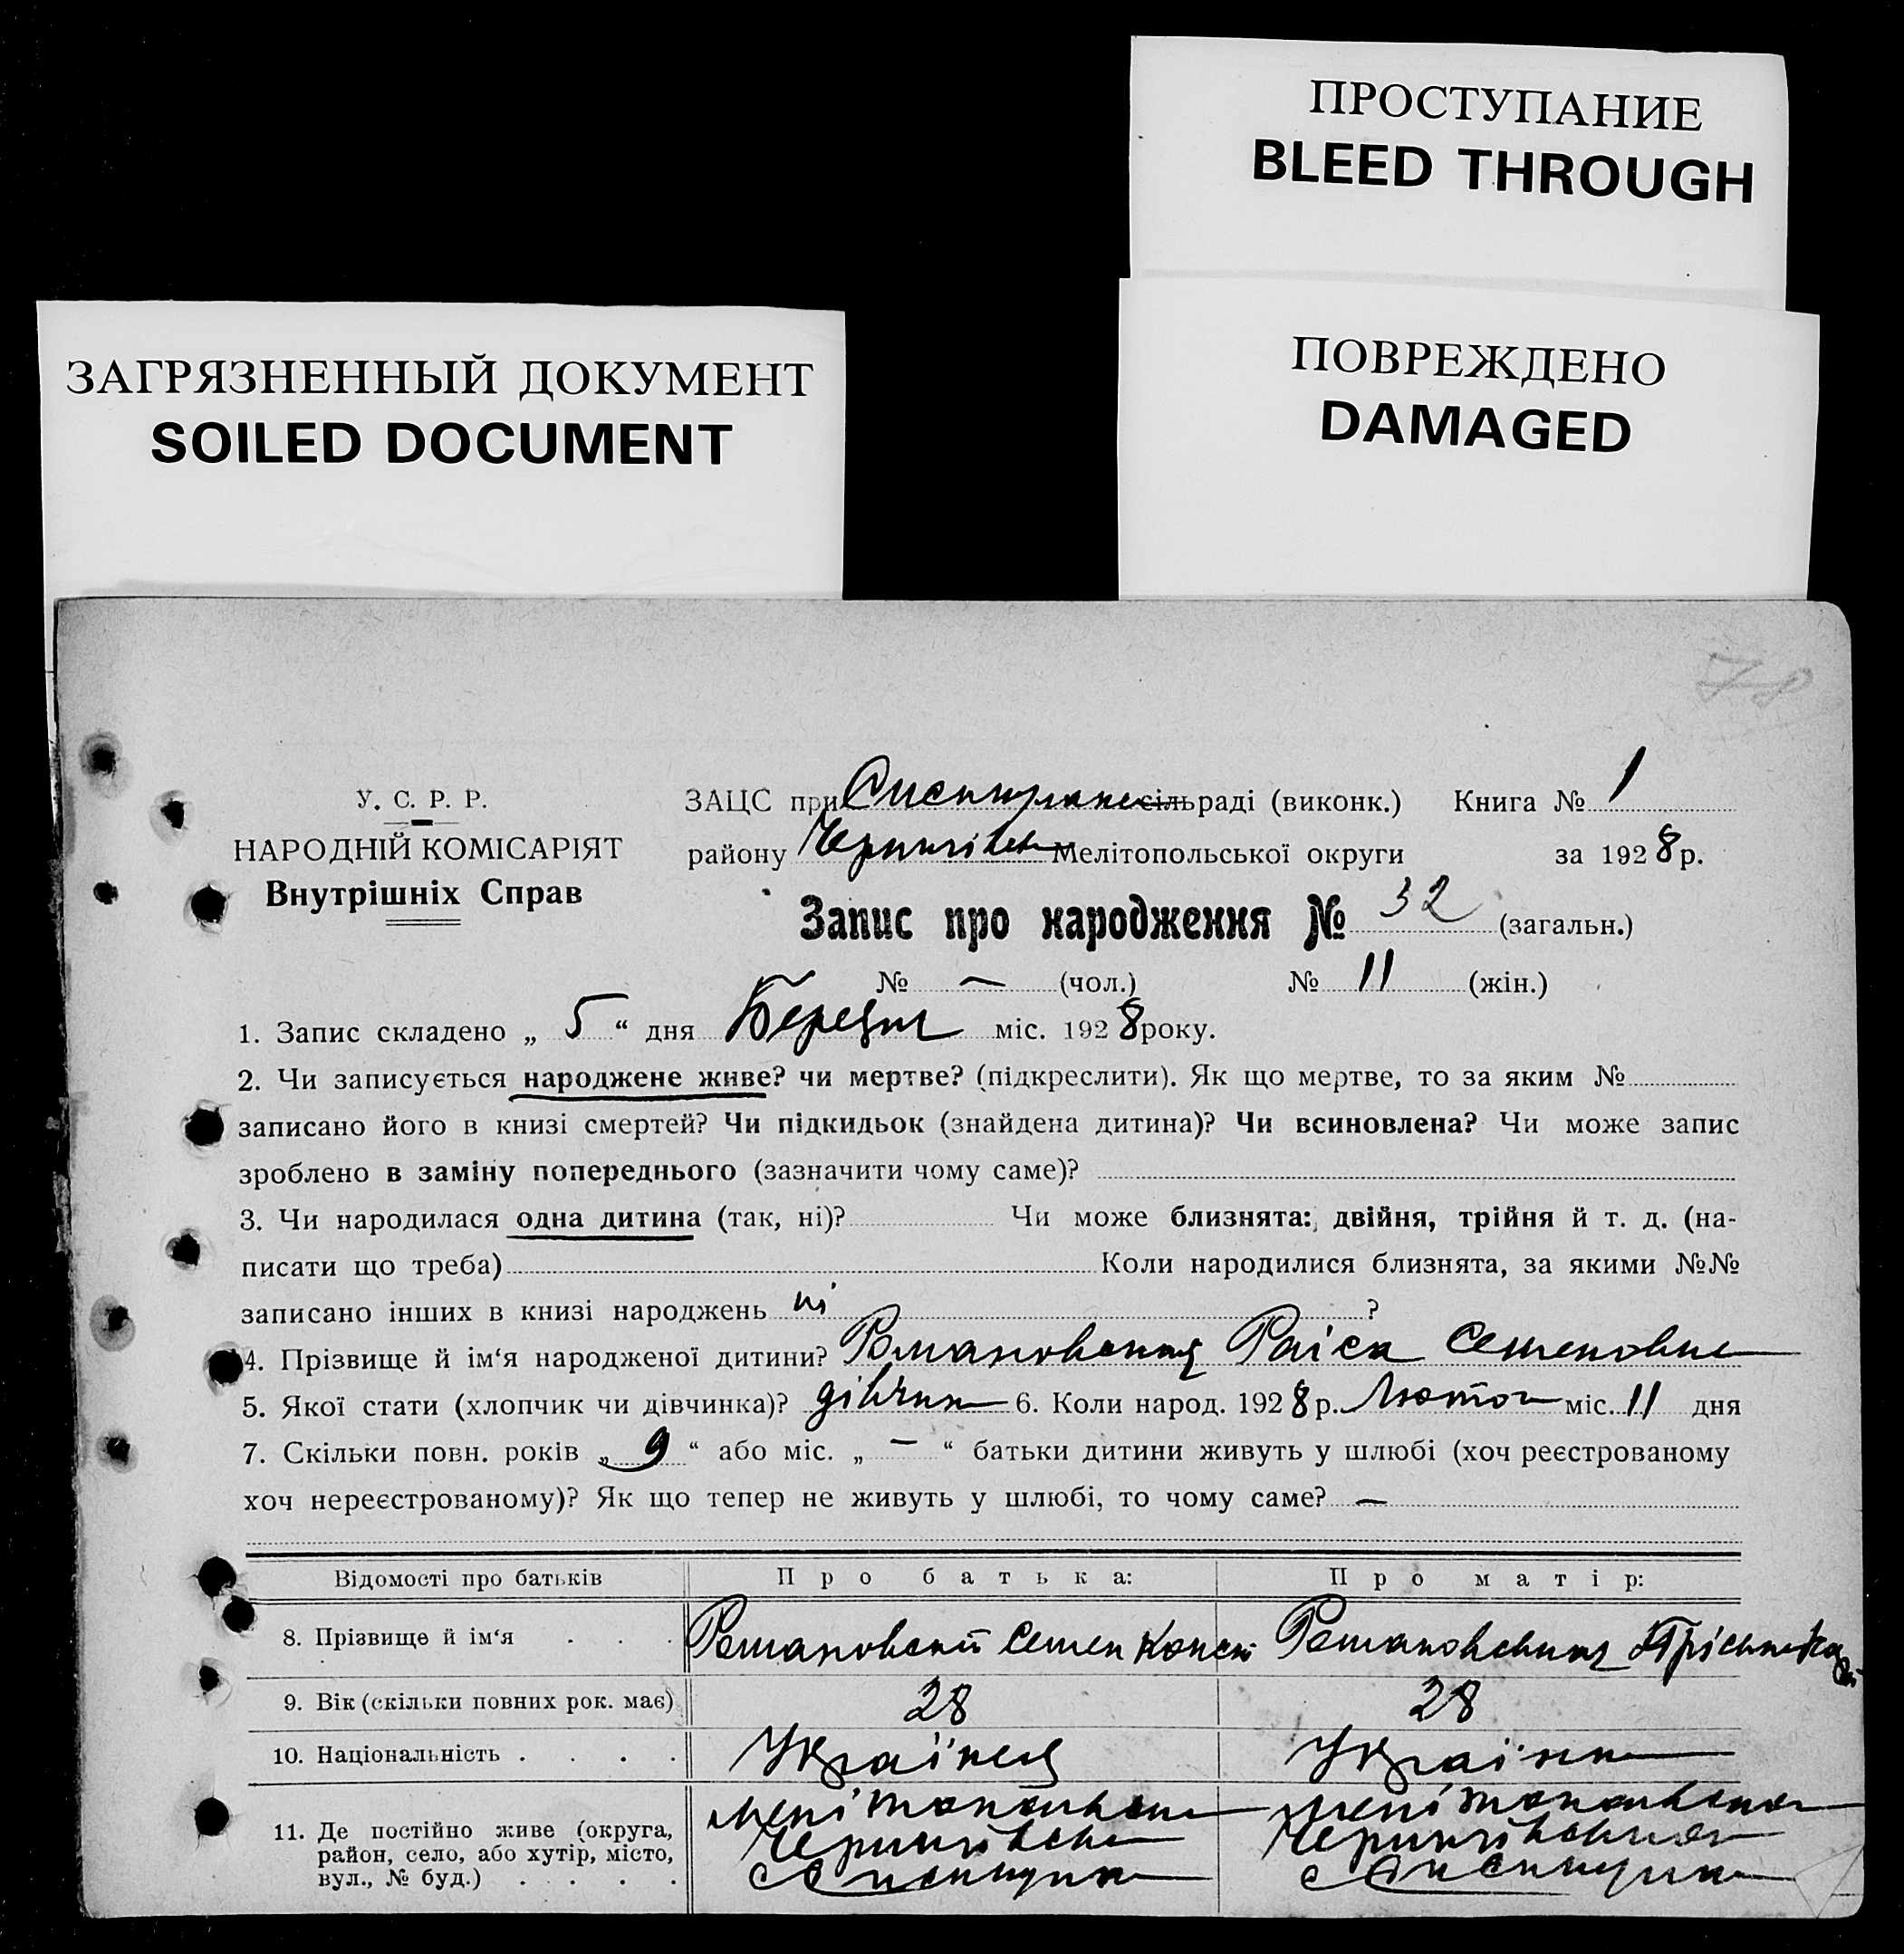 ПРОСТУПАНИЕ
BLEED THROUGH
ЗАГРЯЗНЕННЫЙ ДОКУМЕНТ
SOILED DOCUMENT
ПОВРЕЖДЕНО
DAMAGED
78
У. С. Р. Р.
НАРОДНІЙ КОМІСАРІЯТ
Внутрішніх Справ
ЗАЦС при сільраді (виконк.) Книга № 1
району Мелітопольської округи за 1928 р.
Запис про народження № 32 (загальн.)
№ — (чол.) № 11 (жін.)
1. Запис складено „ 5 “ дня Березня міс. 1928 року.
2. Чи записується народжене живе? чи мертве? (підкреслити). Як що мертве, то за яким №
записано його в книзі смертей? Чи підкидьок (знайдена дитина)? Чи всиновлена? Чи може запис
зроблено в заміну попереднього (зазначити чому саме)?
3. Чи народилася одна дитина (так, ні)? Чи може близнята: двійня, трійня й т. д. (на-
писати що треба) Коли народилися близнята, за якими №№
записано інших в книзі народжень ні ?
4. Прізвище й ім‘я народженої дитини? Романовская Раіса Семеновна
5. Якої стати (хлопчик чи дівчинка)? дівчина 6. Коли народ. 1928 р. Лютого міс. 11 дня
7. Скільки повн. років „ 9 “ або міс. „ — “ батьки дитини живуть у шлюбі (хоч реєстрованому
хоч нереєстрованому)? Як що тепер не живуть у шлюбі, то чому саме? —
Відомості про батьків Про батька: Про матір:
8. Прізвище й ім‘я . . . Романовский Семен Романовська
9. Вік (скільки повних рок. має) 28 28
10. Національність . . . . Українец Українка
11. Де постійно живе (округа,
район, село, або хутір, місто,
вул., № буд.) . . . .